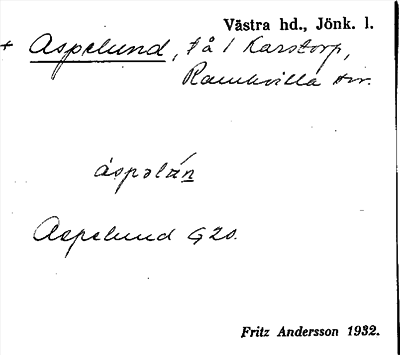 Västra hd., Jönk. l.
+ Aspelund, på 1 Karstorp,
Ramkvilla sn.
áspəlún
Aspelund G20.
Fritz Andersson 1932.